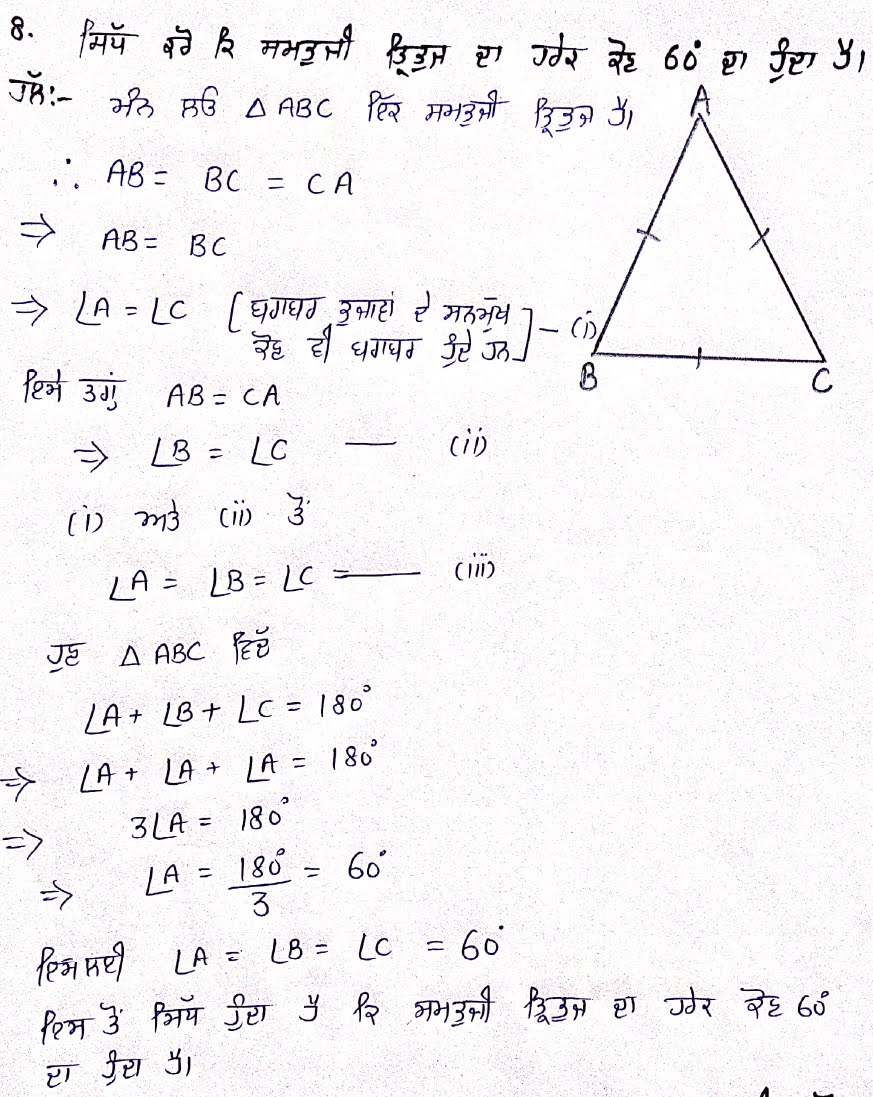 8. ਸਿੱਧ ਕਰੋ ਕਿ ਸਮਭੁਜੀ ਤ੍ਰਿਭੁਜ ਦਾ ਹਰੇਕ ਕੋਣ 60° ਦਾ ਹੁੰਦਾ ਹੈ।
ਹੱਲ:- ਮੰਨ ਲਓ △ ABC ਇੱਕ ਸਮਭੁਜੀ ਤ੍ਰਿਭੁਜ ਹੈ।
A
∴ AB = BC = CA
⇒ AB = BC
⇒ ∠A = ∠C [ਬਰਾਬਰ ਭੁਜਾਵਾਂ ਦੇ ਸਨਮੁੱਖ
ਕੋਣ ਵੀ ਬਰਾਬਰ ਹੁੰਦੇ ਹਨ] — (i)
B C
ਇਸੇ ਤਰ੍ਹਾਂ AB = CA
⇒ ∠B = ∠C — (ii)
(i) ਅਤੇ (ii) ਤੋਂ
∠A = ∠B = ∠C = — (iii)
ਹੁਣ △ ABC ਵਿੱਚ
∠A + ∠B + ∠C = 180°
⇒ ∠A + ∠A + ∠A = 180°
⇒ 3∠A = 180°
⇒ ∠A = 180°/3 = 60°
ਇਸ ਲਈ ∠A = ∠B = ∠C = 60°
ਇਸ ਤੋਂ ਸਿੱਧ ਹੁੰਦਾ ਹੈ ਕਿ ਸਮਭੁਜੀ ਤ੍ਰਿਭੁਜ ਦਾ ਹਰੇਕ ਕੋਣ 60°
ਦਾ ਹੁੰਦਾ ਹੈ।